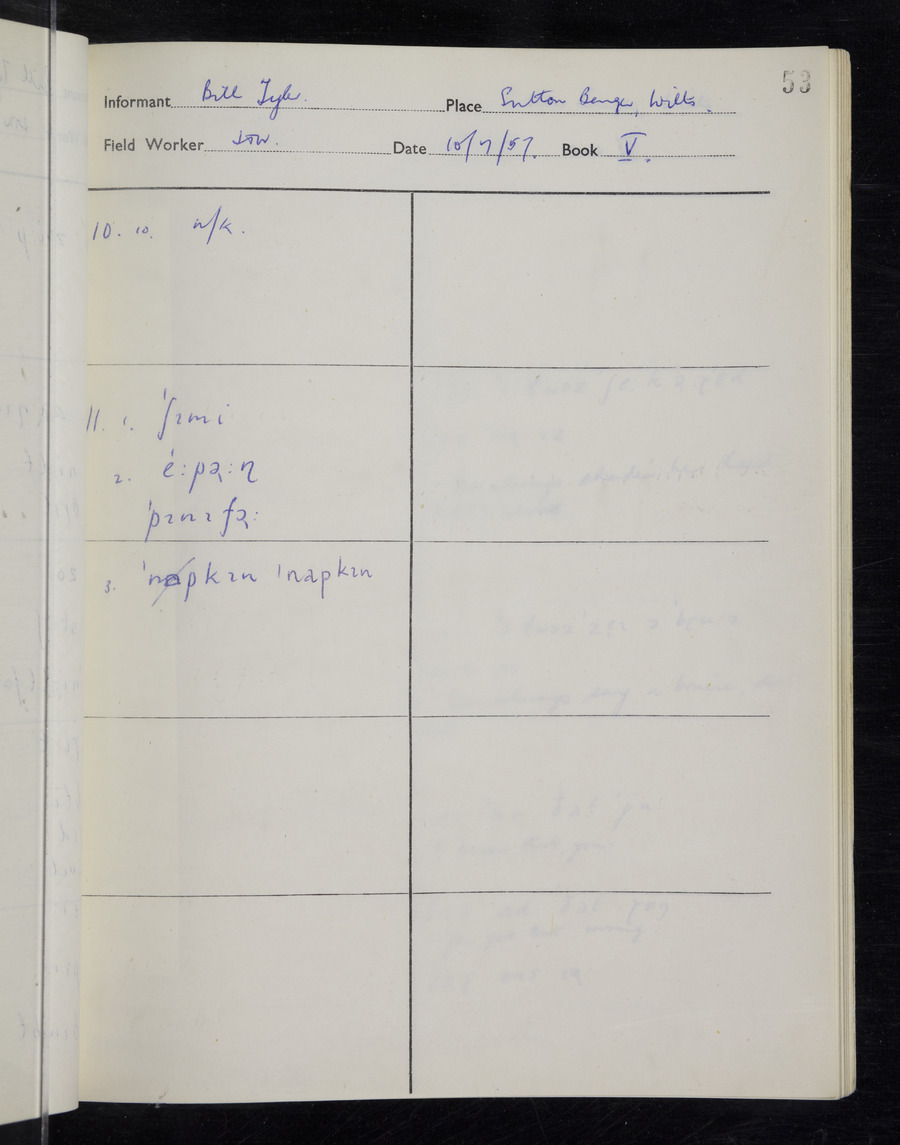 53
Informant Bill Tyler. Place Sutton Benger, Wilts.
Field Worker Date 10/7/57. Book V.
10. 10. n/k.
11. 1. ˈʃɪmi
2. ˈeːpɚːn̩
ˈpɪnɪfɚː
3. ˈnapkɪn ˈnapkɪn